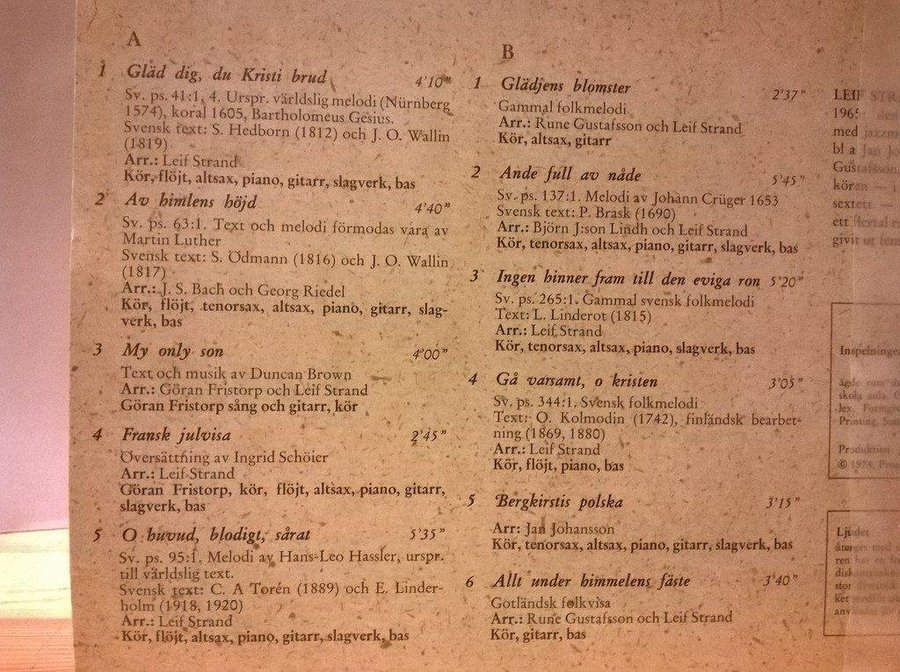 A
1 Gläd dig, du Kristi brud 4'10"
Sv. ps. 41:1, 4. Urspr. världslig melodi (Nürnberg
1574), koral 1605, Bartholomeus Gesius.
Svensk text: S. Hedborn (1812) och J. O. Wallin
(1819)
Arr.: Leif Strand
Kör, flöjt, altsax, piano, gitarr, slagverk, bas
2 Av himlens höjd 4'40"
Sv. ps. 63:1. Text och melodi förmodas vara av
Martin Luther
Svensk text: S. Ödmann (1816) och J. O. Wallin
(1817)
Arr.: J. S. Bach och Georg Riedel
Kör, flöjt, tenorsax, altsax, piano, gitarr, slag-
verk, bas
3 My only son 4'00"
Text och musik av Duncan Brown
Arr.: Göran Fristorp och Leif Strand
Göran Fristorp sång och gitarr, kör
4 Fransk julvisa 2'45"
Översättning av Ingrid Schöier
Arr.: Leif Strand
Göran Fristorp, kör, flöjt, altsax, piano, gitarr,
slagverk, bas
5 O huvud, blodigt, sårat 5'35"
Sv. ps. 95:1. Melodi av Hans-Leo Hassler, urspr.
till världslig text.
Svensk text: C. A Torén (1889) och E. Linder-
holm (1918, 1920)
Arr.: Leif Strand
Kör, flöjt, altsax, piano, gitarr, slagverk, bas
B
1 Glädjens blomster 2'37"
Gammal folkmelodi
Arr.: Rune Gustafsson och Leif Strand
Kör, altsax, gitarr
2 Ande full av nåde 5'45"
Sv. ps. 137:1. Melodi av Johann Crüger 1653
Svensk text: P. Brask (1690)
Arr.: Björn J:son Lindh och Leif Strand
Kör, tenorsax, altsax, piano, gitarr, slagverk, bas
3 Ingen hinner fram till den eviga ron 5'20"
Sv. ps. 265:1. Gammal svensk folkmelodi
Text: L. Linderot (1815)
Arr.: Leif Strand
Kör, tenorsax, altsax, piano, slagverk, bas
4 Gå varsamt, o kristen 3'05"
Sv. ps. 344:1. Svensk folkmelodi
Text: O. Kolmodin (1742), finländsk bearbet-
ning (1869, 1880)
Arr.: Leif Strand
Kör, flöjt, piano, bas
5 Bergkirstis polska 3'15"
Arr: Jan Johansson
Kör, tenorsax, altsax, piano, gitarr, slagverk, bas
6 Allt under himmelens fäste 3'40"
Gotländsk folkvisa
Arr.: Rune Gustafsson och Leif Strand
Kör, gitarr, bas
LEIF STR
1965
med jazzen
bl a Jan Jo
Gustafsson
kören
sextett
ett flertal
givit ut
Inspelningen
ägde rum
skola aula
Printing
Produktion
© 1974
Ljudet